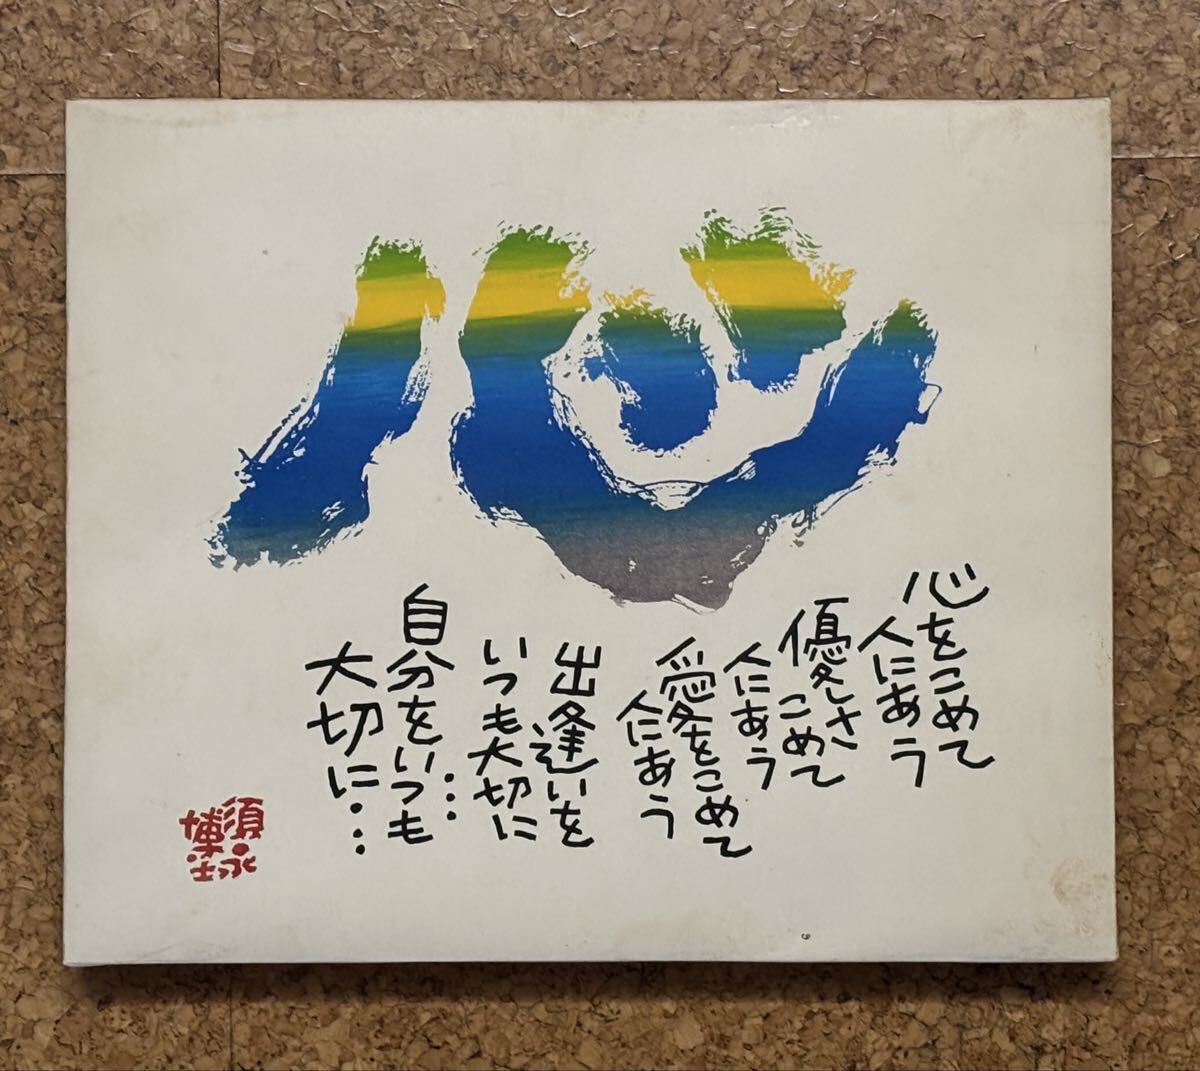 心
心をこめて
人にあう
優しさ
こめて
人にあう
愛をこめて
人にあう
出逢いを
いつも大切に
…
自分をいつも
大切に…
須永
博士